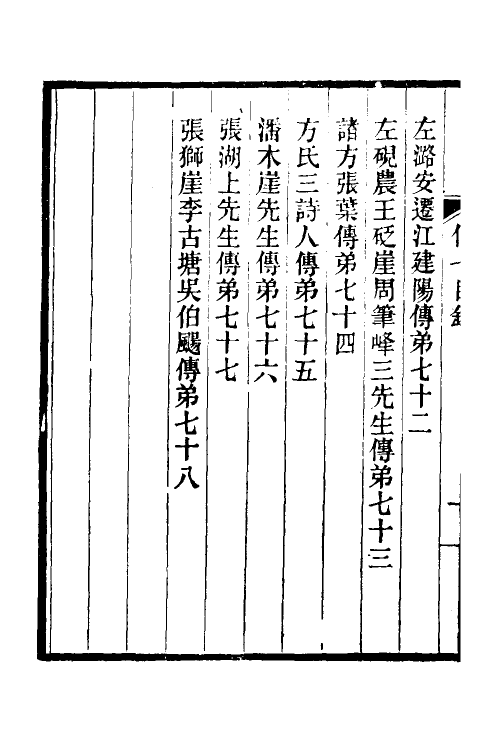 左潞安遷江建陽傳弟七十二
左硯農王砭崖周筆峰三先生傳弟七十三
諸方張葉傳弟七十四
方氏三詩人傳弟七十五
潘木崖先生傳弟七十六
張湖上先生傳弟七十七
張獅崖李古塘吳伯颺傳弟七十八